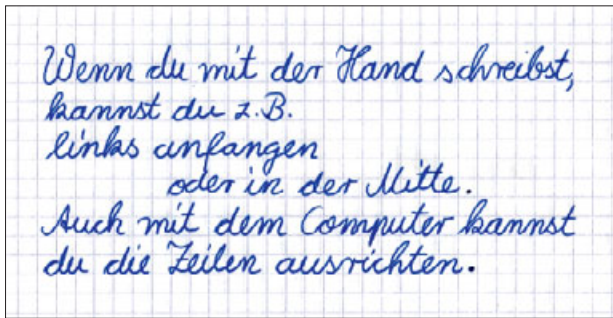 Wenn du mit der Hand schreibst,
kannst du z.B.
links anfangen
oder in der Mitte.
Auch mit dem Computer kannst
du die Zeilen ausrichten.